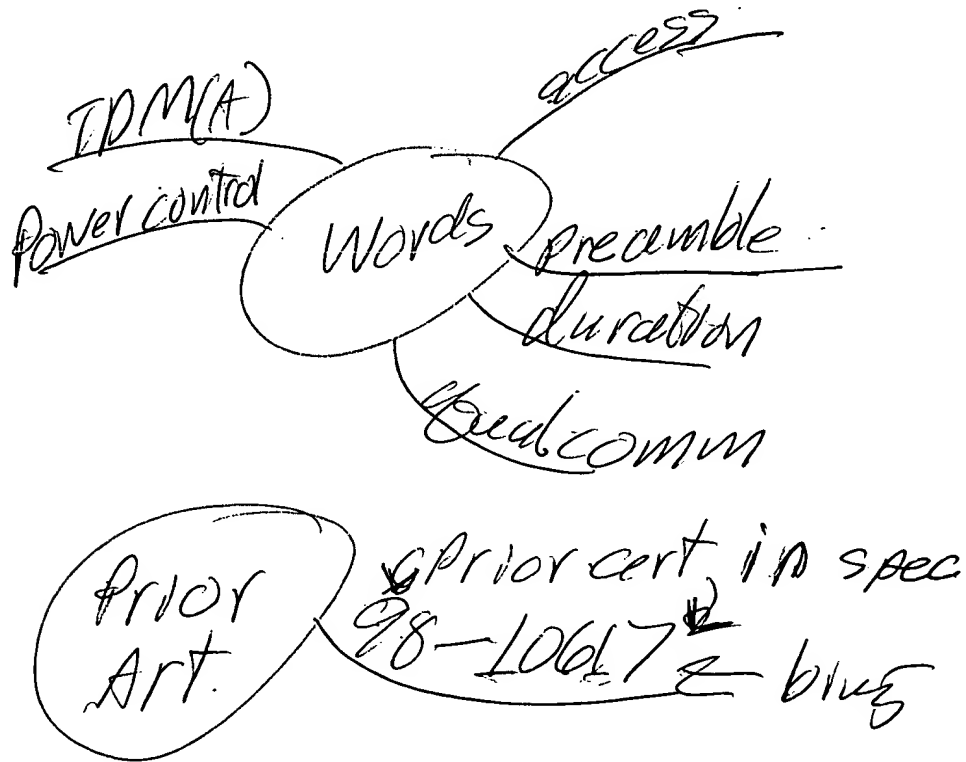 access
TDM(A)
Power control
Words
preamble
duration
Qualcomm
Prior
Art.
Prior cert in spec
98-10617